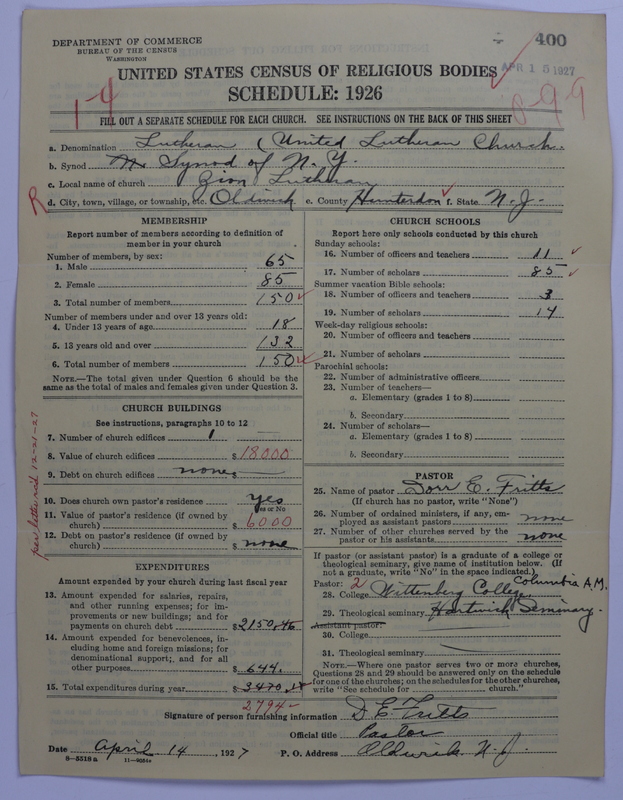 DEPARTMENT OF COMMERCE
BUREAU OF THE CENSUS
WASHINGTON
400
APR 15 1927
UNITED STATES CENSUS OF RELIGIOUS BODIES
SCHEDULE: 1926
1-4
8-99
FILL OUT A SEPARATE SCHEDULE FOR EACH CHURCH. SEE INSTRUCTIONS ON THE BACK OF THIS SHEET
a. Denomination Lutheran (United Lutheran Church.
b. Synod Synod of N.Y.
c. Local name of church Zion Lutheran
R d. City, town, village, or township, etc. Oldwick e. County Hunterdon f. State N.J.
MEMBERSHIP
Report number of members according to definition of
member in your church
Number of members, by sex:
1. Male 65
2. Female 85
3. Total number of members 150
Number of members under and over 13 years old:
4. Under 13 years of age 18
5. 13 years old and over 132
6. Total number of members 150
NOTE.—The total given under Question 6 should be the
same as the total of males and females given under Question 3.
CHURCH BUILDINGS
See instructions, paragraphs 10 to 12
7. Number of church edifices 1
8. Value of church edifices $ 18000
9. Debt on church edifices none $
10. Does church own pastor's residence yes
Yes or No
11. Value of pastor's residence (if owned by
church) $ 6000
12. Debt on pastor's residence (if owned by
church) $ none
per letter rec'd 12-21-27
EXPENDITURES
Amount expended by your church during last fiscal year
13. Amount expended for salaries, repairs,
and other running expenses; for im-
provements or new buildings; and for
payments on church debt $2150.46
14. Amount expended for benevolences, in-
cluding home and foreign missions; for
denominational support; and for all
other purposes $ 644.
15. Total expenditures during year $
2794-
CHURCH SCHOOLS
Report here only schools conducted by this church
Sunday schools:
16. Number of officers and teachers 11
17. Number of scholars 85
Summer vacation Bible schools:
18. Number of officers and teachers 3
19. Number of scholars 14
Week-day religious schools:
20. Number of officers and teachers
21. Number of scholars
Parochial schools:
22. Number of administrative officers
23. Number of teachers—
a. Elementary (grades 1 to 8)
b. Secondary
24. Number of scholars—
a. Elementary (grades 1 to 8)
b. Secondary
PASTOR
25. Name of pastor Dorr E. Fritts
(If church has no pastor, write "None")
26. Number of ordained ministers, if any, em-
ployed as assistant pastors none
27. Number of other churches served by the
pastor or his assistants none
If pastor (or assistant pastor) is a graduate of a college or
theological seminary, give name of institution below. (If
not a graduate, write "No" in the space indicated.)
Pastor: 2 Columbia A.M.
28. College Wittenberg College
29. Theological seminary Hartwick Seminary.
Assistant pastor:
30. College
31. Theological seminary
NOTE.—Where one pastor serves two or more churches,
Questions 28 and 29 should be answered only on the schedule
for one of the churches; on the schedules for the other churches,
write "See schedule for church."
Signature of person furnishing information D E Fritts
Official title Pastor
Date April 14, 1927 P. O. Address Oldwick N. J.
8—5518 a 11—9051a